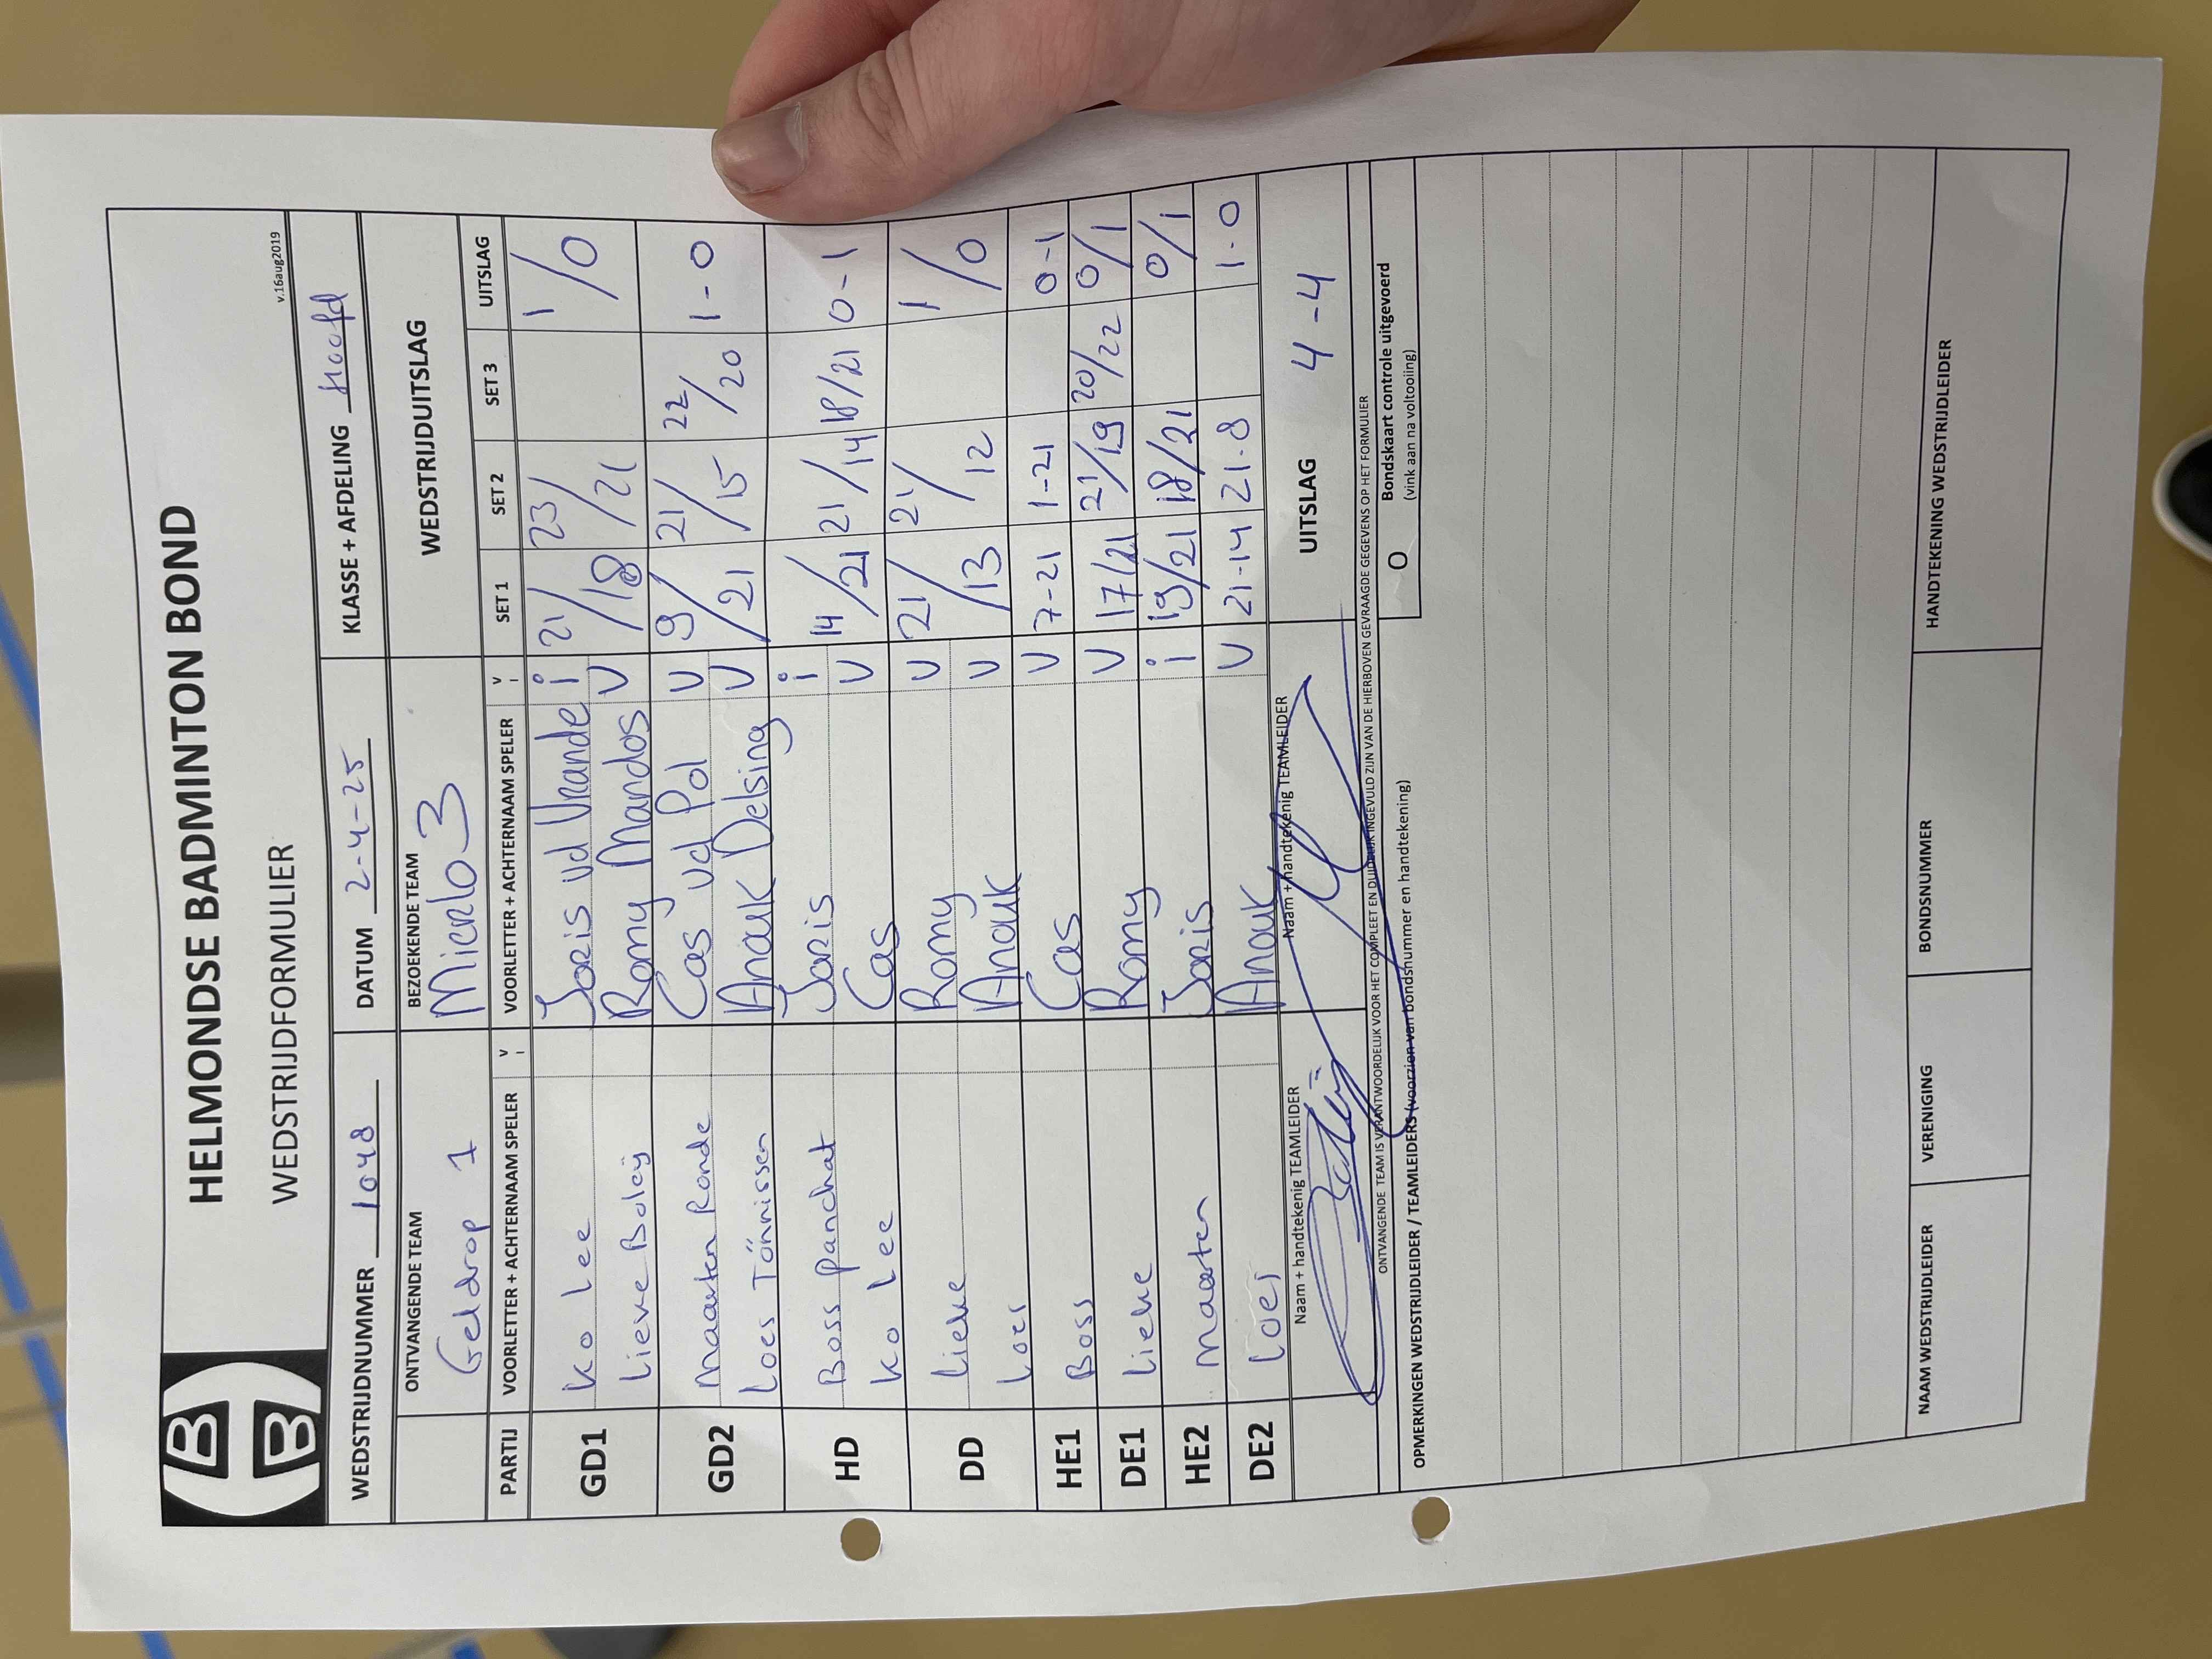 HELMONDSE BADMINTON BOND
WEDSTRIJDFORMULIER
v.16aug2019
WEDSTRIJDNUMMER 1048 DATUM 2-4-25 KLASSE + AFDELING Hoofd
ONTVANGENDE TEAM BEZOEKENDE TEAM WEDSTRIJDUITSLAG
Geldrop 1 Mierlo 3
PARTIJ VOORLETTER + ACHTERNAAM SPELER V I VOORLETTER + ACHTERNAAM SPELER V I SET 1 SET 2 SET 3 UITSLAG
GD1 Ko Lee Joris vd Vrande i 21/18 23/21 1/0
Lieve Boleij Romy Mandos V
GD2 Maarten Ronde Cas vd Pol V 9/21 21/15 22/20 1-0
Loes Tönnissen Anouk Delsing V
HD Boss Panchat Joris i 14/21 21/14 18/21 0-1
Ko Lee Cas V
DD Lieke Romy V 21/13 21/12 1/0
Loes Anouk V
HE1 Boss Cas V 7-21 1-21 0-1
DE1 Lieke Romy V 17/21 21/19 20/22 0/1
HE2 Maarten Joris i 19/21 18/21 0/1
DE2 Loes Anouk V 21-14 21-8 1-0
Naam + handtekenig TEAMLEIDER Naam + handtekenig TEAMLEIDER UITSLAG 4-4
ONTVANGENDE TEAM IS VERANTWOORDELIJK VOOR HET COMPLEET EN DUIDELIJK INGEVULD ZIJN VAN DE HIERBOVEN GEVRAAGDE GEGEVENS OP HET FORMULIER
OPMERKINGEN WEDSTRIJDLEIDER / TEAMLEIDERS (voorzien van bondsnummer en handtekening)
O Bondskaart controle uitgevoerd
(vink aan na voltooiing)
NAAM WEDSTRIJDLEIDER VERENIGING BONDSNUMMER HANDTEKENING WEDSTRIJDLEIDER